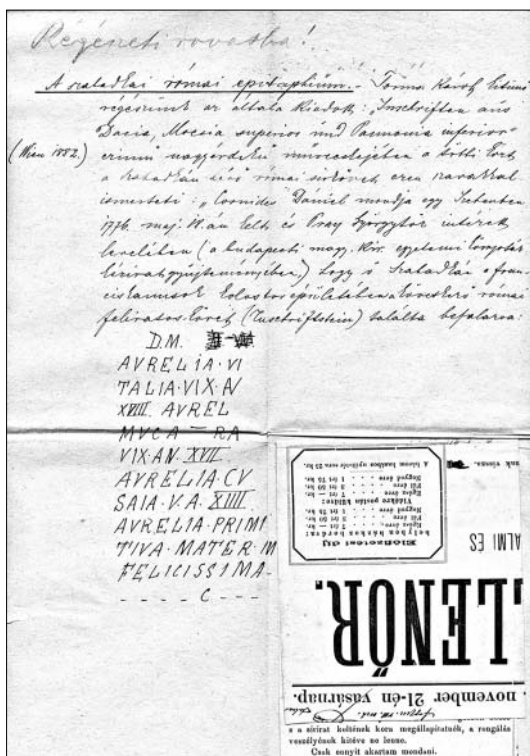 Régészeti rovatba!
A szabadkai római epitaphium. - Torma Károly kitünő
régészünk az általa kiadott: „Inschriften aus
Dacia, Moesia superior und Pannonia inferior"
(Wien 1882.)
czimű nagyérdekű művecskéjében a
a szabadkán lévő római sirkövet ezen szavakkal
ismerteti: „Cornides Dániel mondja egy
1776. maj. 18.án kelt és Pray Györgyhöz intézett
levelében (a budapesti magy. kir. egyetemi könyvtár
kéziratgyüjteményében,) hogy ő Szabadkán a fran
ciskanusok kolostorépületében a következő római
feliratos követ (Inschriftstein) találta befalazva:
D.M.
AVRELIA·VI
TALIA·VIX·AN
XVIII. AVREL
MVCA — RA
VIX·AN. XVII
AVRELIA·CV
SAIA·V.A. XIIII
AVRELIA·PRIMI
TIVA·MATER·IN
FELICISSIMA-
- - - - C - - -
nak vissza.
ALMI ÉS
Előfizetési díj
helyben házhoz hordva:
Egész évre . . . 7 frt — kr.
Fél évre . . . 3 frt 50 kr.
Negyed évre . . . 1 frt 75 kr.
Vidékre postán küldve:
Egész évre . . . 7 frt — kr.
Fél évre . . . 3 frt 50 kr.
Negyed évre . . . 1 frt 75 kr.
A három hasábos nyílttér sora 25 kr.
LENŐR.
november 21-én vasárnap.
s a sirirat keltének kora megállapitatnék, a rongálás
veszélyének kitéve ne lenne.
Csak ennyit akartam mondani.